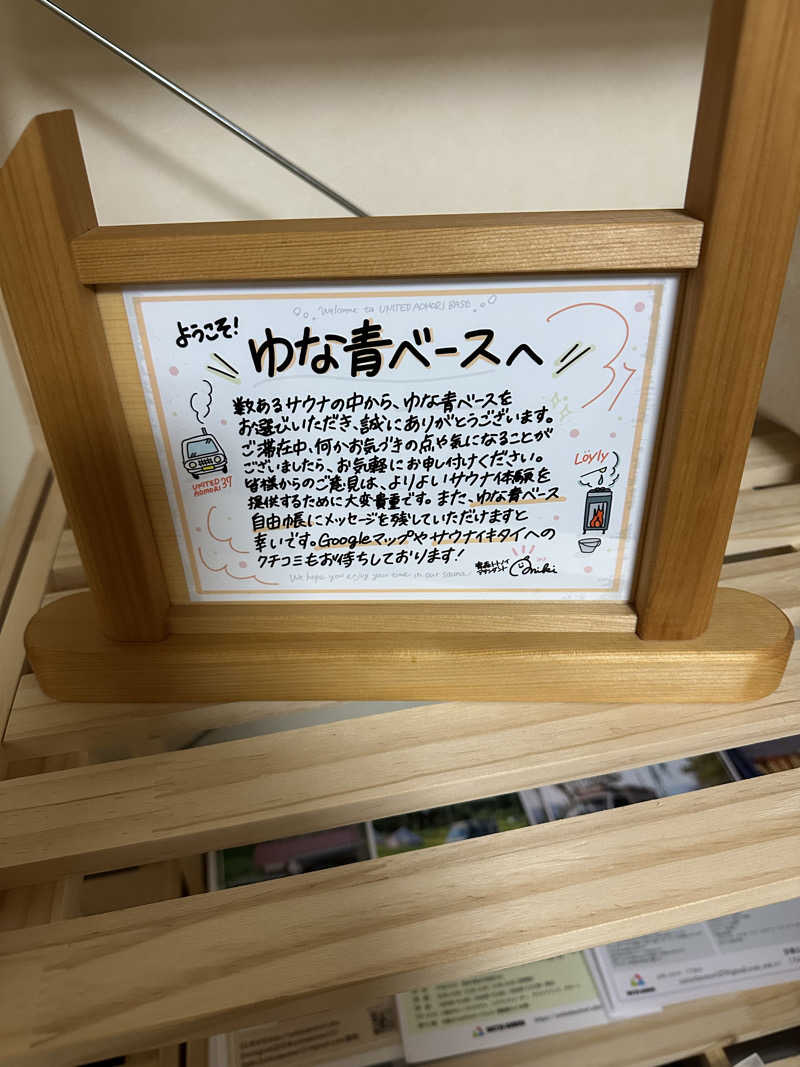 Welcome to UNITED AOMORI BASE
ようこそ!
ゆな青ベースへ
37
数あるサウナの中から、ゆな青ベースを
お選びいただき、誠にありがとうございます。
ご滞在中、何かお気づきの点や気になることが
ございましたら、お気軽にお申し付けください。
皆様からのご意見は、よりよいサウナ体験を
提供するために大変貴重です。また、ゆな青ベース
自由帳にメッセージを残していただけますと
幸いです。Googleマップやサウナイキタイへの
クチコミもお待ちしております!
UNITED 37
AOMORI
Löyly
We hope you enjoy your time in our sauna.